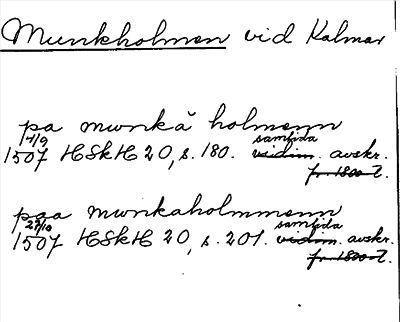 Munkholmen vid Kalmar
pa munkā holmenn
4/9 samtida
1507 HSkH 20, s. 180. vidim. avskr.
fr. 1800-t.
paa munkaholmmenn
27/10 samtida
1507 HSkH 20, s. 201. vidim. avskr.
fr. 1800-t.